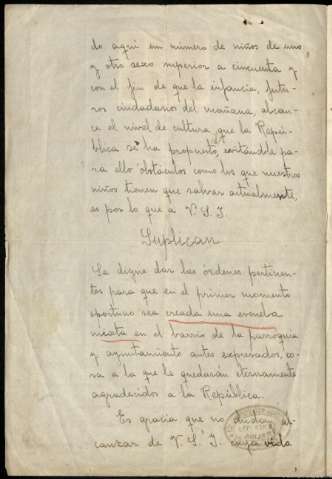 do aqui em número de niños de uno
y otro sexo superior a cincuenta y
con el fin de que la infancia, futu-
ros ciudadanos del mañana, alcan-
ce el nivel de cultura que la Repú-
blica se ha propuesto, evitándole pa-
ra ello obstáculos como los que nuestros
niños tienen que salvar actualmente,
es por lo que a V. S. I.
Suplican
Se digne dar las ordenes pertinen-
tes para que en el primer momento
oportuno sea creada una escuela
mixta en el barrio de la parroquia
y ayuntamiento antes expresados, co-
sa a la que le quedarán eternamente
agradecidos a la República.
Es gracia que no dudan al-
canzar de V. S. I. cuya vida